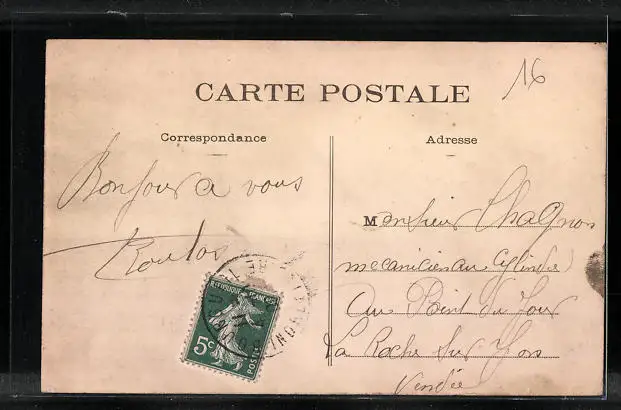 16
CARTE POSTALE
Correspondance
Adresse
Bonjour a vous
Monsieur Chagnon
mecanicien au Cylindre
Au Point du Jour
La Roche sur Yon
Vendée
REPUBLIQUE FRANÇAISE
5c
POSTES